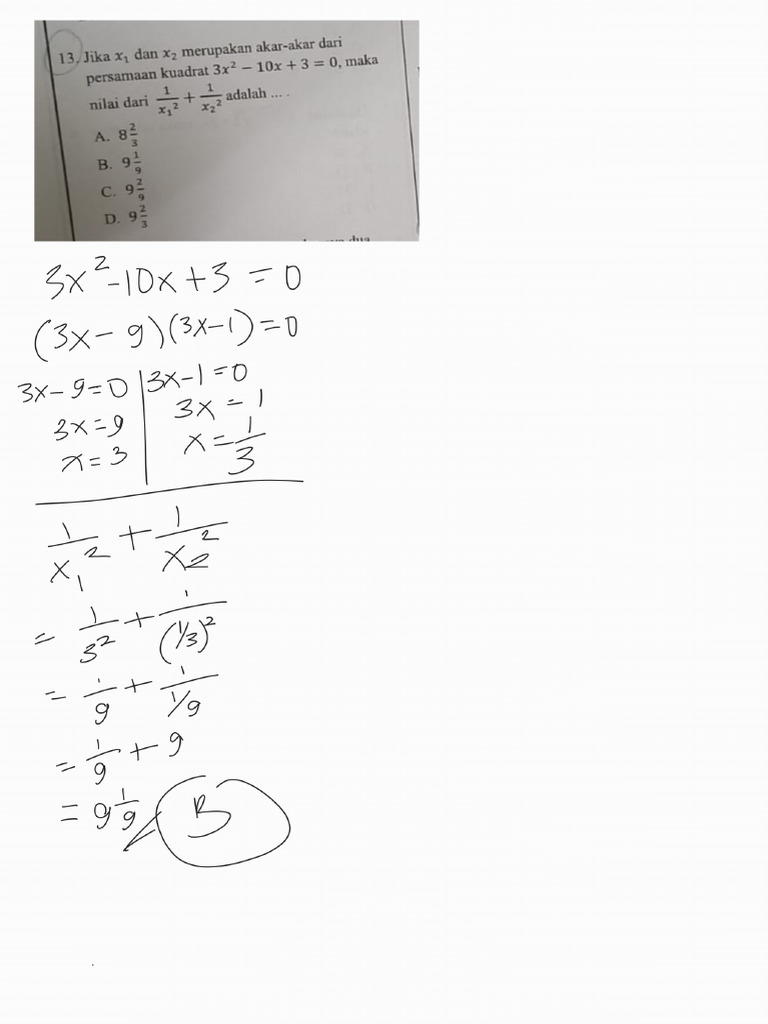 13. Jika x₁ dan x₂ merupakan akar-akar dari
persamaan kuadrat 3x² − 10x + 3 = 0, maka
nilai dari 1/x₁² + 1/x₂² adalah ... .
A. 8 2/3
B. 9 1/9
C. 9 2/9
D. 9 2/3
3x² - 10x + 3 = 0
(3x - 9)(3x - 1) = 0
3x - 9 = 0 | 3x - 1 = 0
3x = 9 | 3x = 1
x = 3 | x = 1/3
1/x₁² + 1/x₂²
= 1/3² + 1/(1/3)²
= 1/9 + 1/(1/9)
= 1/9 + 9
= 9 1/9 B